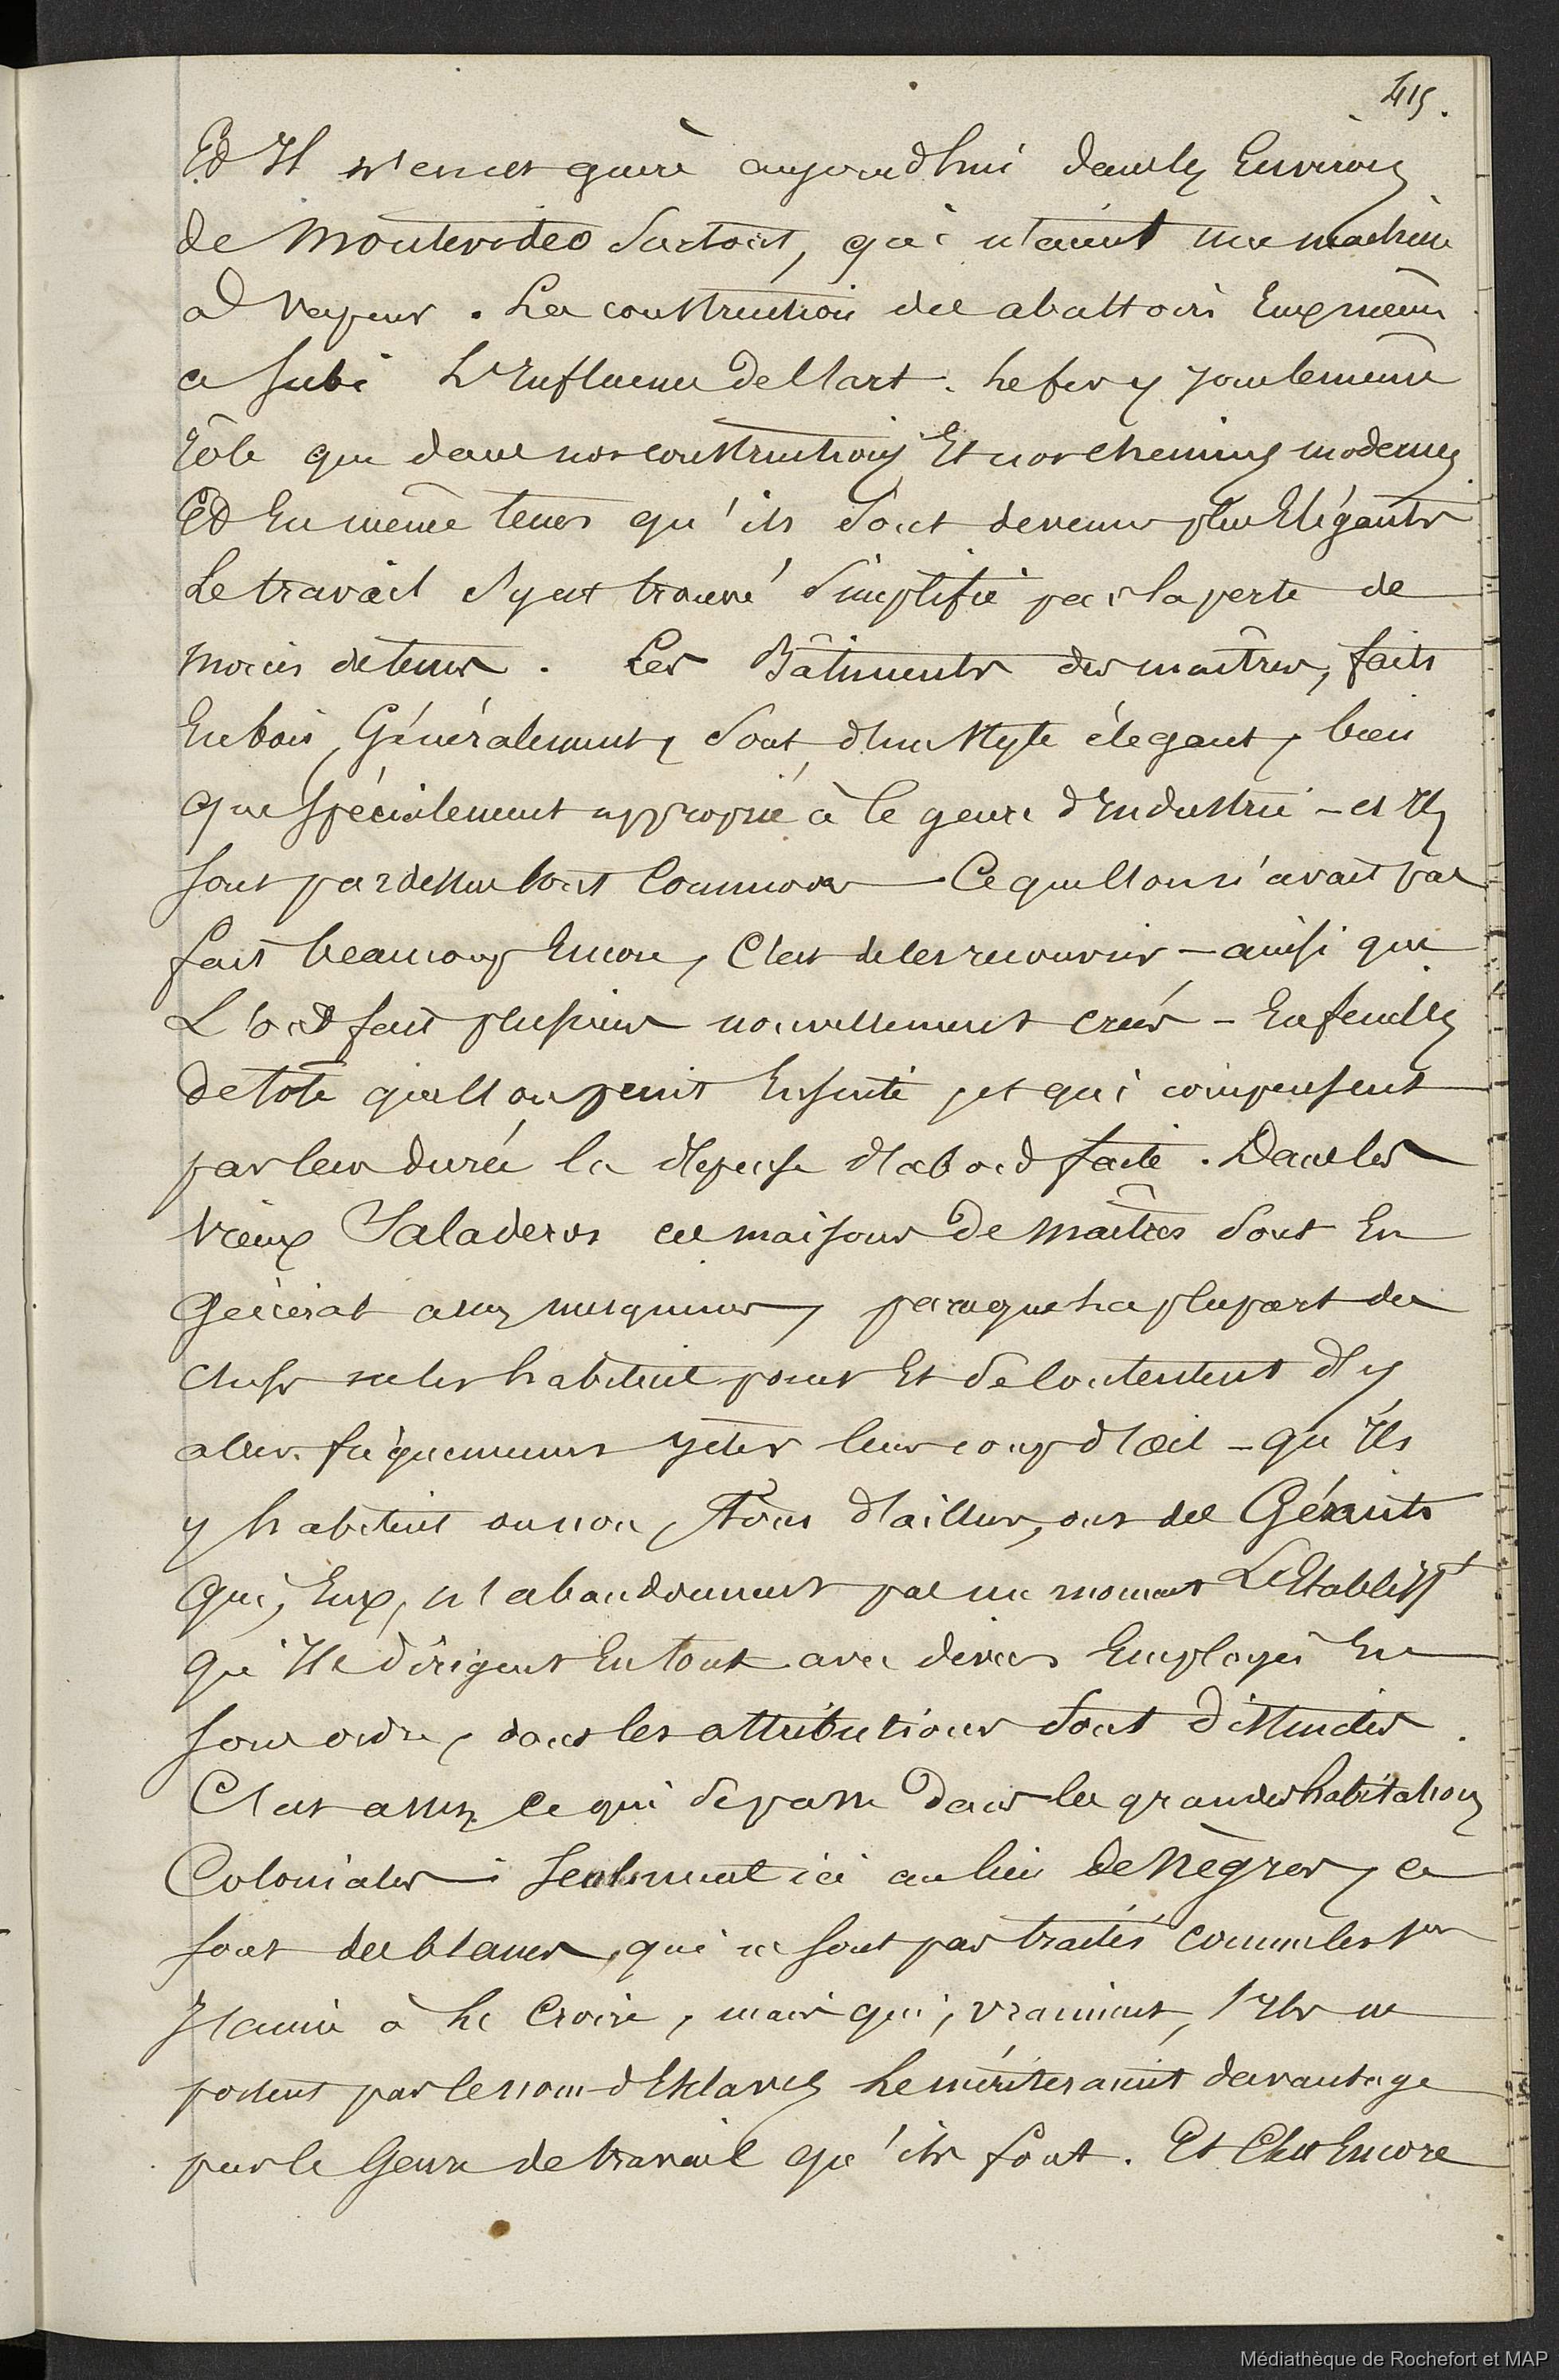 415.
Et Il n'en est guère aujourd'hui dans les Environs
de Montevideo surtout, qui n'aient une machine
à Vapeur. La construction des abattoirs Eux mêmes
a subi L'Influence de l'art. Le fer y joue le même
rôle que dans nos constructions Et nos chemins modernes
Et En même tems qu'ils sont devenus plus Elégants
Le travail s'y est trouvé simplifié par la perte de
moins de tems. Les Bâtiments des maîtres, faits
En bois, Généralement, sont, d'un style élegant, bien
que spécialement approprié à ce genre d'Industrie - et Ils
sont par dessus tout Commodes - Ce que l'on n'avait pas
fait beaucoup Encore, C'est de les recouvrir - ainsi que
L'ont fait plusieurs nouvellement créés - En feuilles
de tole que l'on peint Ensuite, et qui compensent
par leur durée la dépense d'abord faite. Dans les
Vieux Saladeros ces maisons de maîtres sont En
Général assez mesquines, parceque La plupart des
chefs ne les habitent point Et se contentent d'y
aller fréquemment jeter leur coup d'œil - qu'Ils
y habitent ou non, Tous d'ailleurs, ont des Gérants
qui, Eux, n'abandonnent pas un moment L'Etablisst
qu'Ils dirigent En tout avec divers Employés En
sous ordre, dont les attributions sont distinctes.
C'est assez ce qui se passe dans les grandes habitations
Coloniales - seulement ici au lieu de Nègres, ce
sont des blancs, qui ne sont pas traités comme les 1ers
J'aime à Le Croire, mais qui, vraiment, s'Ils ne
portent pas le nom d'Esclaves Le mériteraient davantage
par le Genre de travail qu'ils font. Et C'est Encore
Médiathèque de Rochefort et MAP